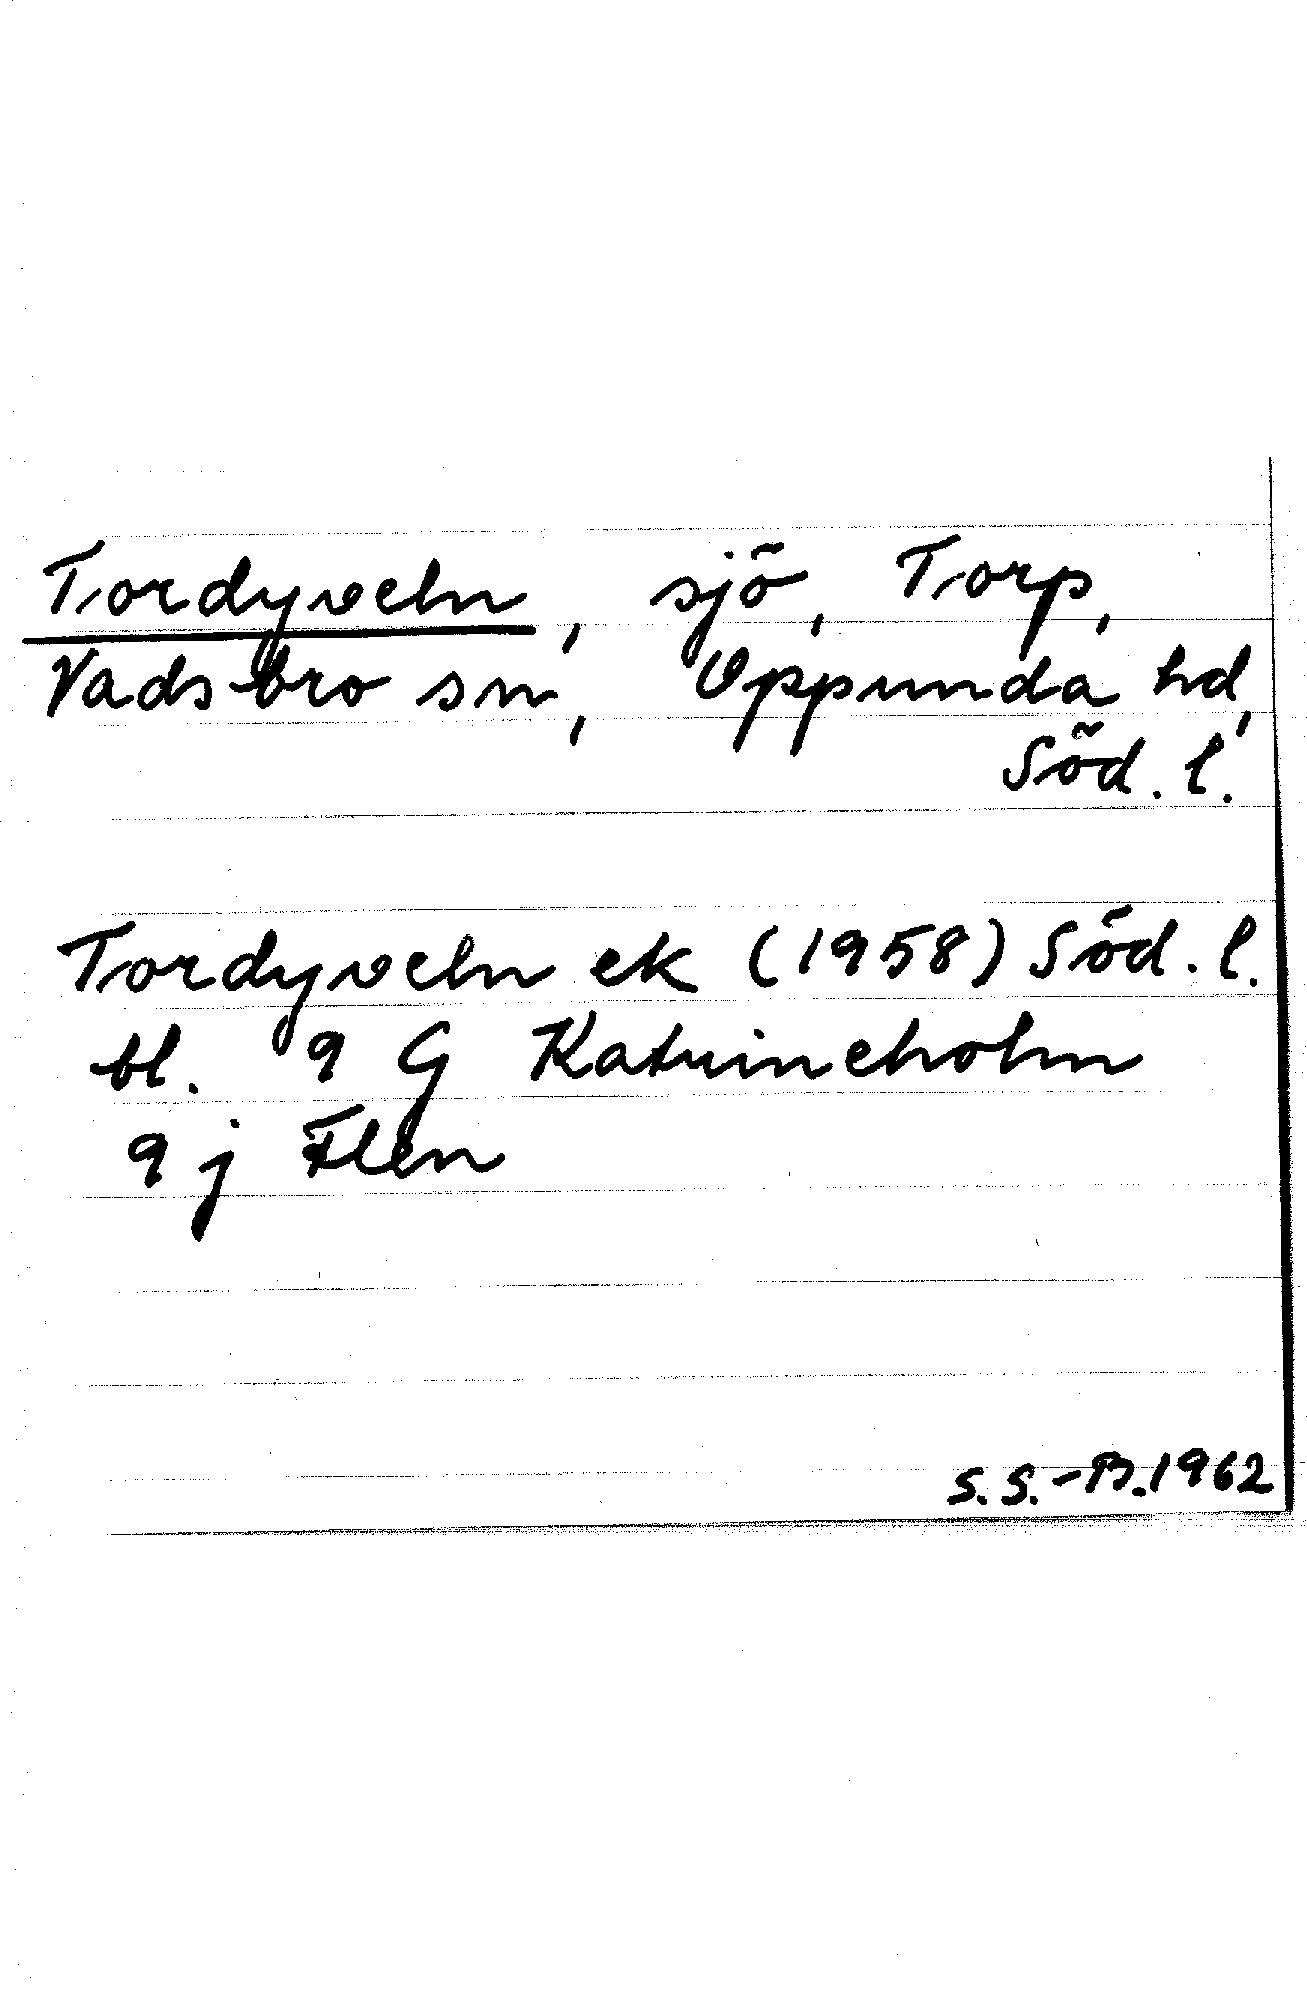 Tordyveln, sjö, Torp,
Vadsbro sn, Oppunda hd,
Söd. l.
Tordyveln ek (1958) Söd. l.
bl. 9 G Katrineholm
9 j Flen
S. S.-B. 1962